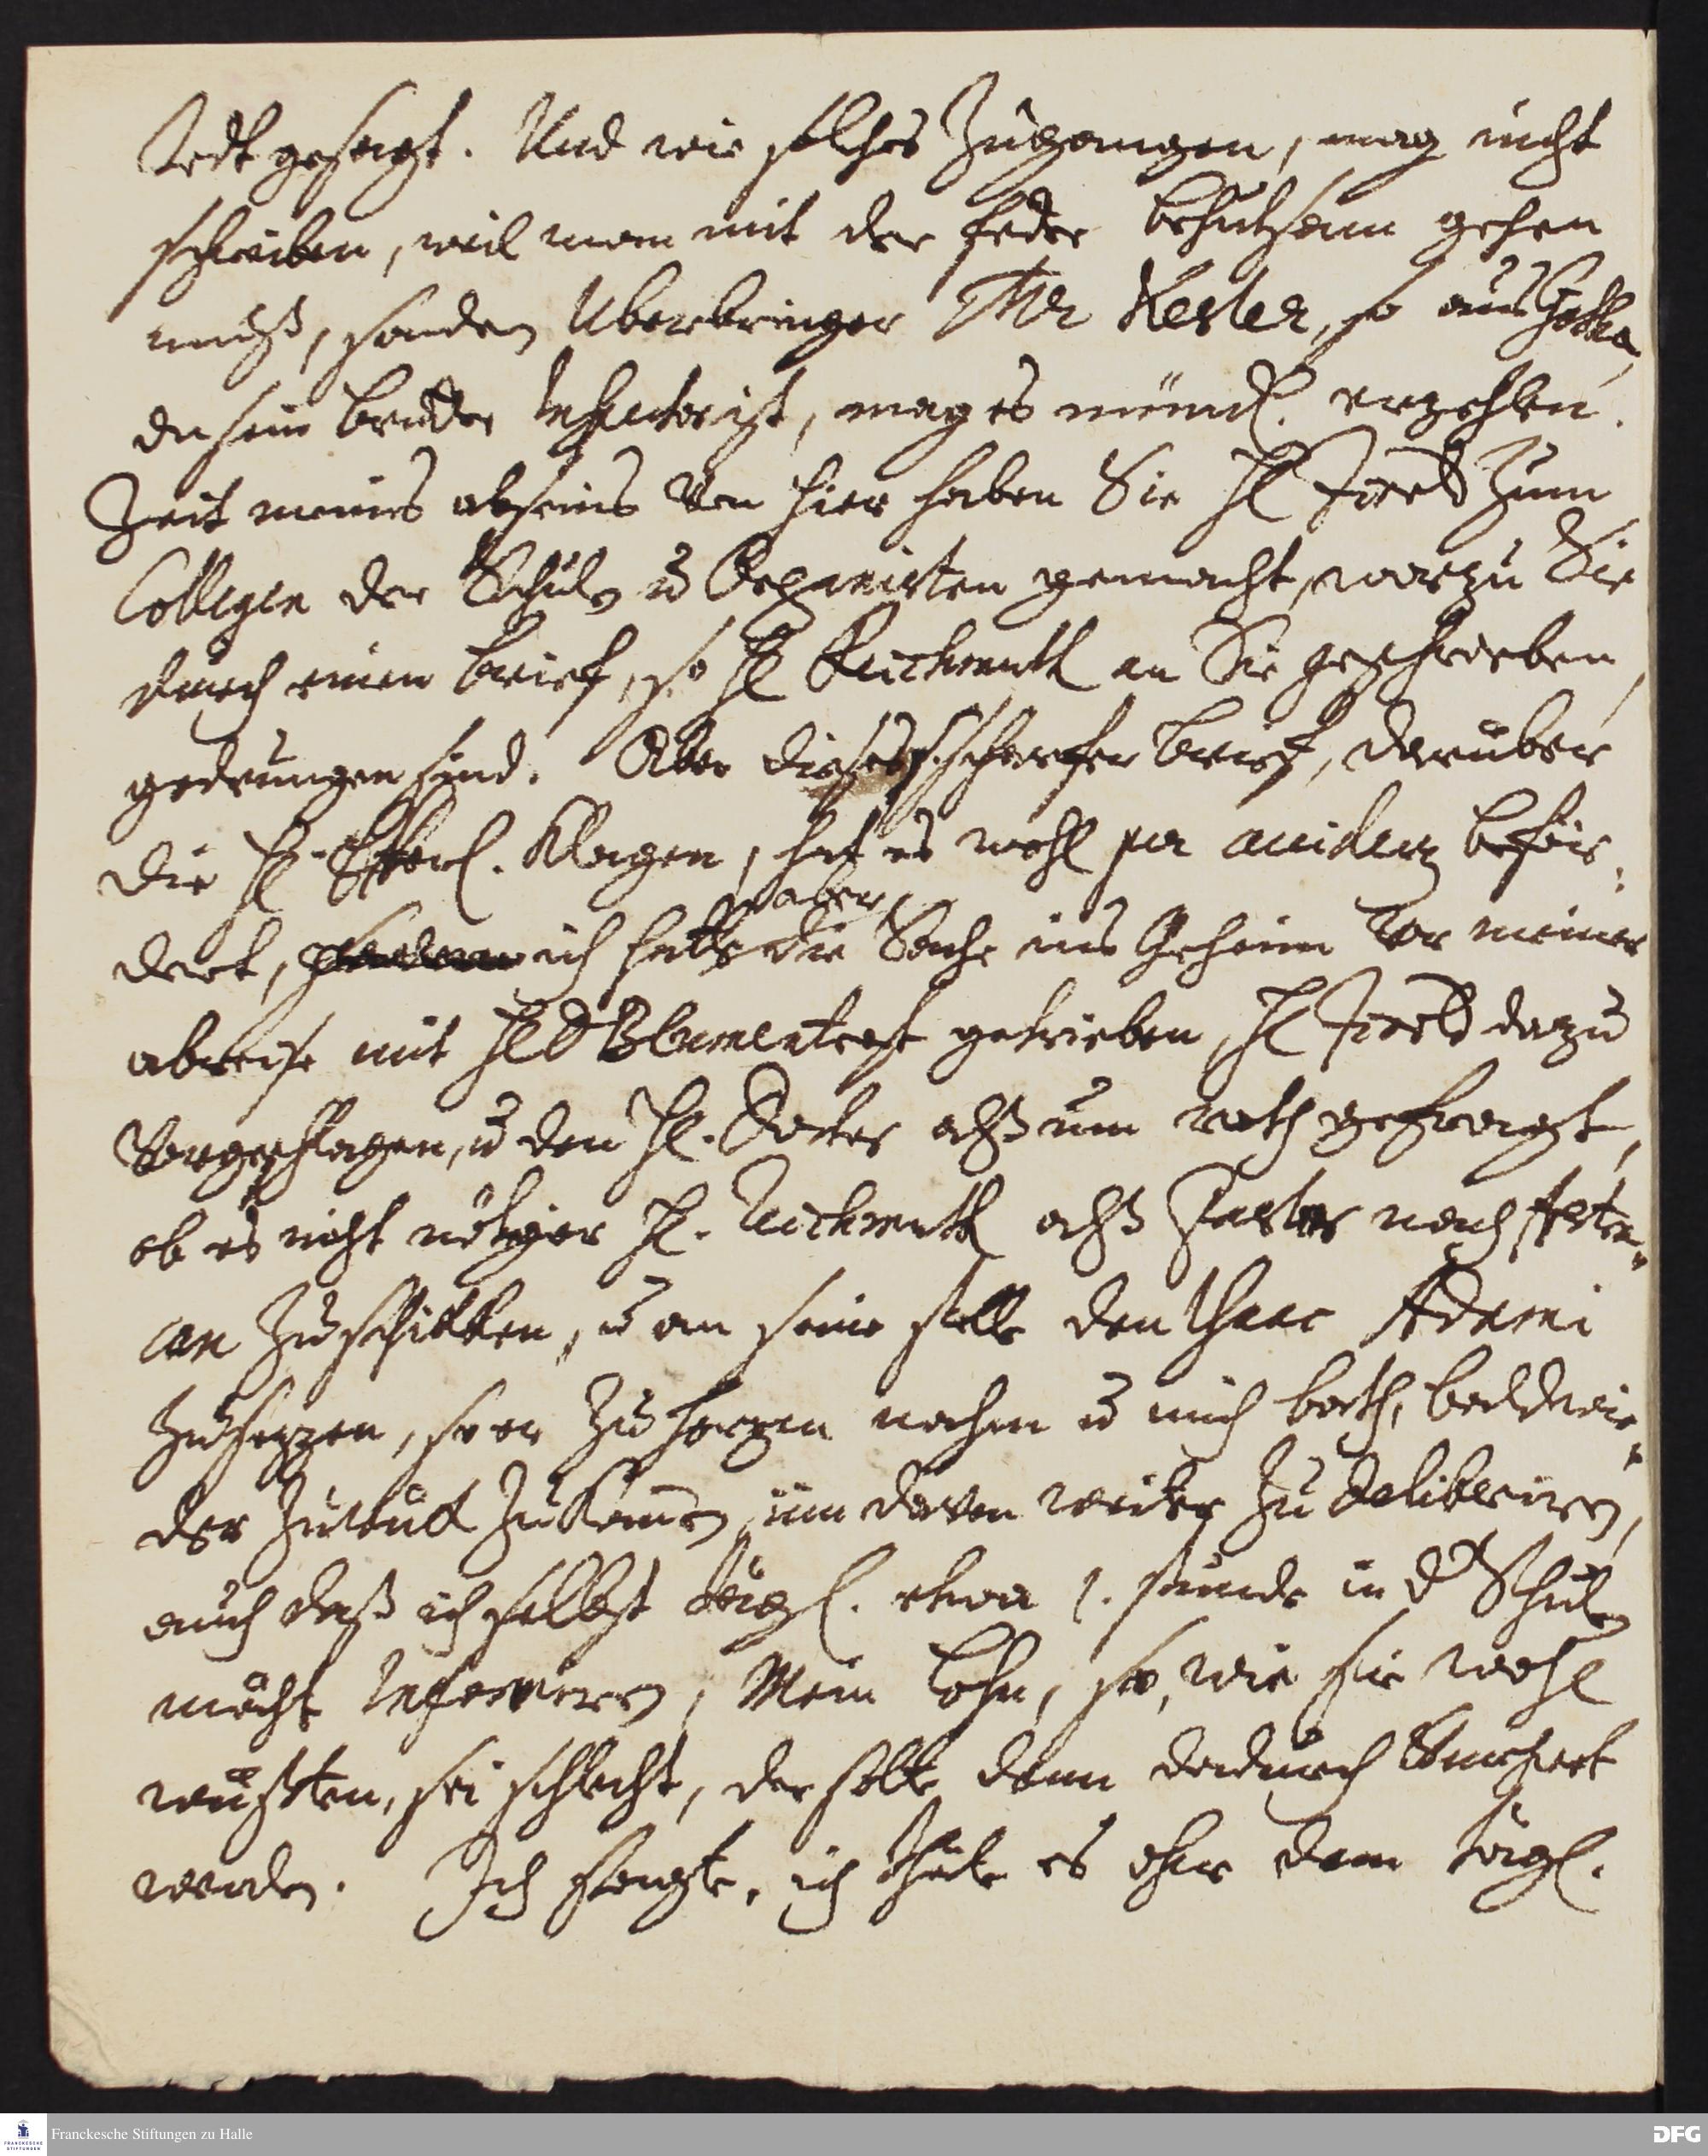 stedt gesagt. Und wie solches Zugangen, mag nicht
schreiben, weil man mit der feder behutsam gehen
muß, sondern Uberbringer Mr Kesler, so aus Gotha,
da sein bruder Inspector ist, mag es mündl. erzehlen.
Zeit meines abseins von hier haben Sie Hl Fierld zum
Collegen der Schulen u Organisten gemacht, worzu Sie
durch einen brieff, so Hl Reichmuth an Sie geschrieben,
gedrungen sind. Aber dieser scharfer brieff, darüber
die Hl. klagen, hat es wohl per accidens beför-
dert, ich hatte aber die Sache ins Geheim vor meiner
abreise mit Hl D Blumentrost getrieben, Hl Fierld dazu
vorgeschlagen, u den Hl. Doctor alß um rath gefragt,
ob es nicht nötiger Hl. Reichmuth alß Pastor nach Astra-
can zu schikken, u an seine stelle den Isaac Adami
zu sezzen, so er zu herzen nahm u mich bath, bald wie-
der zurück zu kommen, um davon weiter zu deliberiren,
auch daß ich selbst tägl. etwa 1. stunde in der Schulen
möcht informiren, Mein Lohn, so, wie sie wohl
wüßten, sei schlecht, der solte dann dadurch vermehrt
werden. Ich sagte, ich thäte es ohne dem tägl.
Franckesche Stiftungen zu Halle
DFG